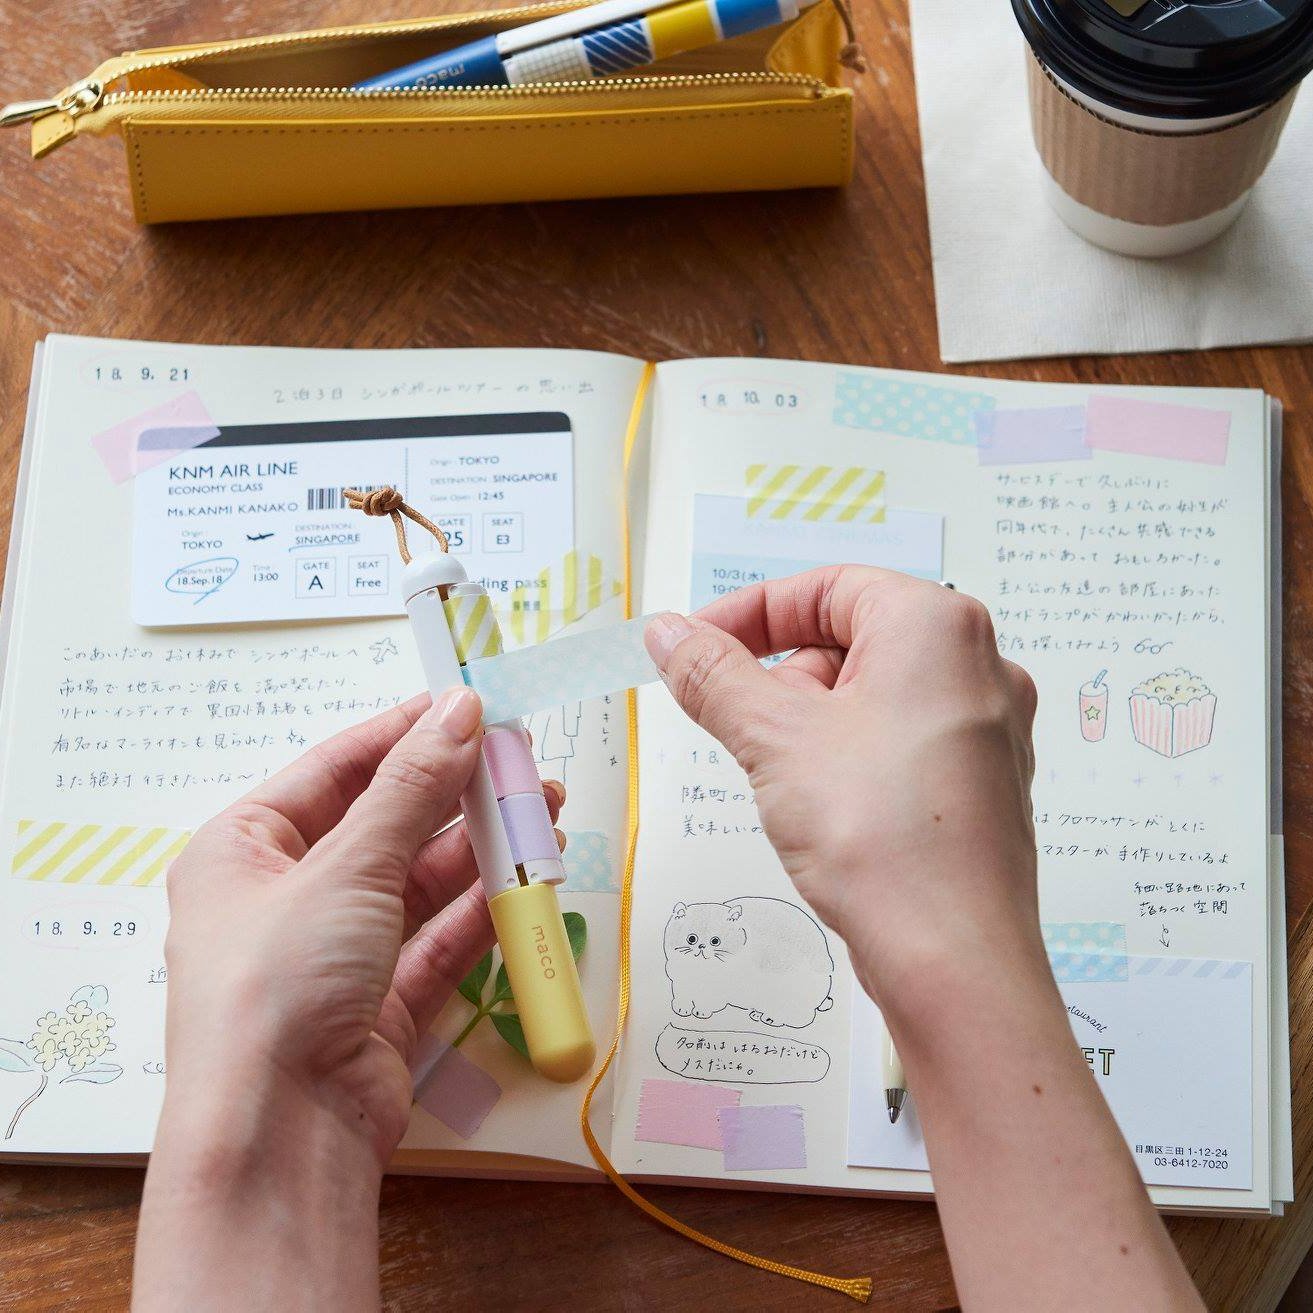 maco
18. 9. 21
2泊3日 シンガポールツアー の思い出
KNM AIR LINE
ECONOMY CLASS
Ms.KANMI KANAKO
Origin : TOKYO
DESTINATION : SINGAPORE
Gate Open : 12:45
Origin :
TOKYO
DESTINATION :
SINGAPORE
GATE
25
SEAT
E3
Departure Date
18.Sep.18
Time :
13:00
GATE
A
SEAT
Free
ding pass
このあいだの お休みで シンガポールへ
市場で地元のご飯を満喫したり、
リトル・インディアで 異国情緒を 味わったり
有名なマーライオンも見られた
また絶対 行きたいな〜!
18. 9. 29
近
maco
18. 10. 03
10/3(水)
19:0
サービスデーで久しぶりに
映画館へ。主人公の女性が
同年代で、たくさん共感できる
部分があって おもしろかった。
主人公の友達の部屋にあった
サイドランプがかわいかったから、
今度探してみよう
18.
隣町の
美味しいの
は クロワッサンが とくに
マスターが 手作りしているよ
細い路地にあって
落ちつく空間
名前は はるおだけど
メスだにゃ。
taurant
ET
目黒区三田 1-12-24
03-6412-7020